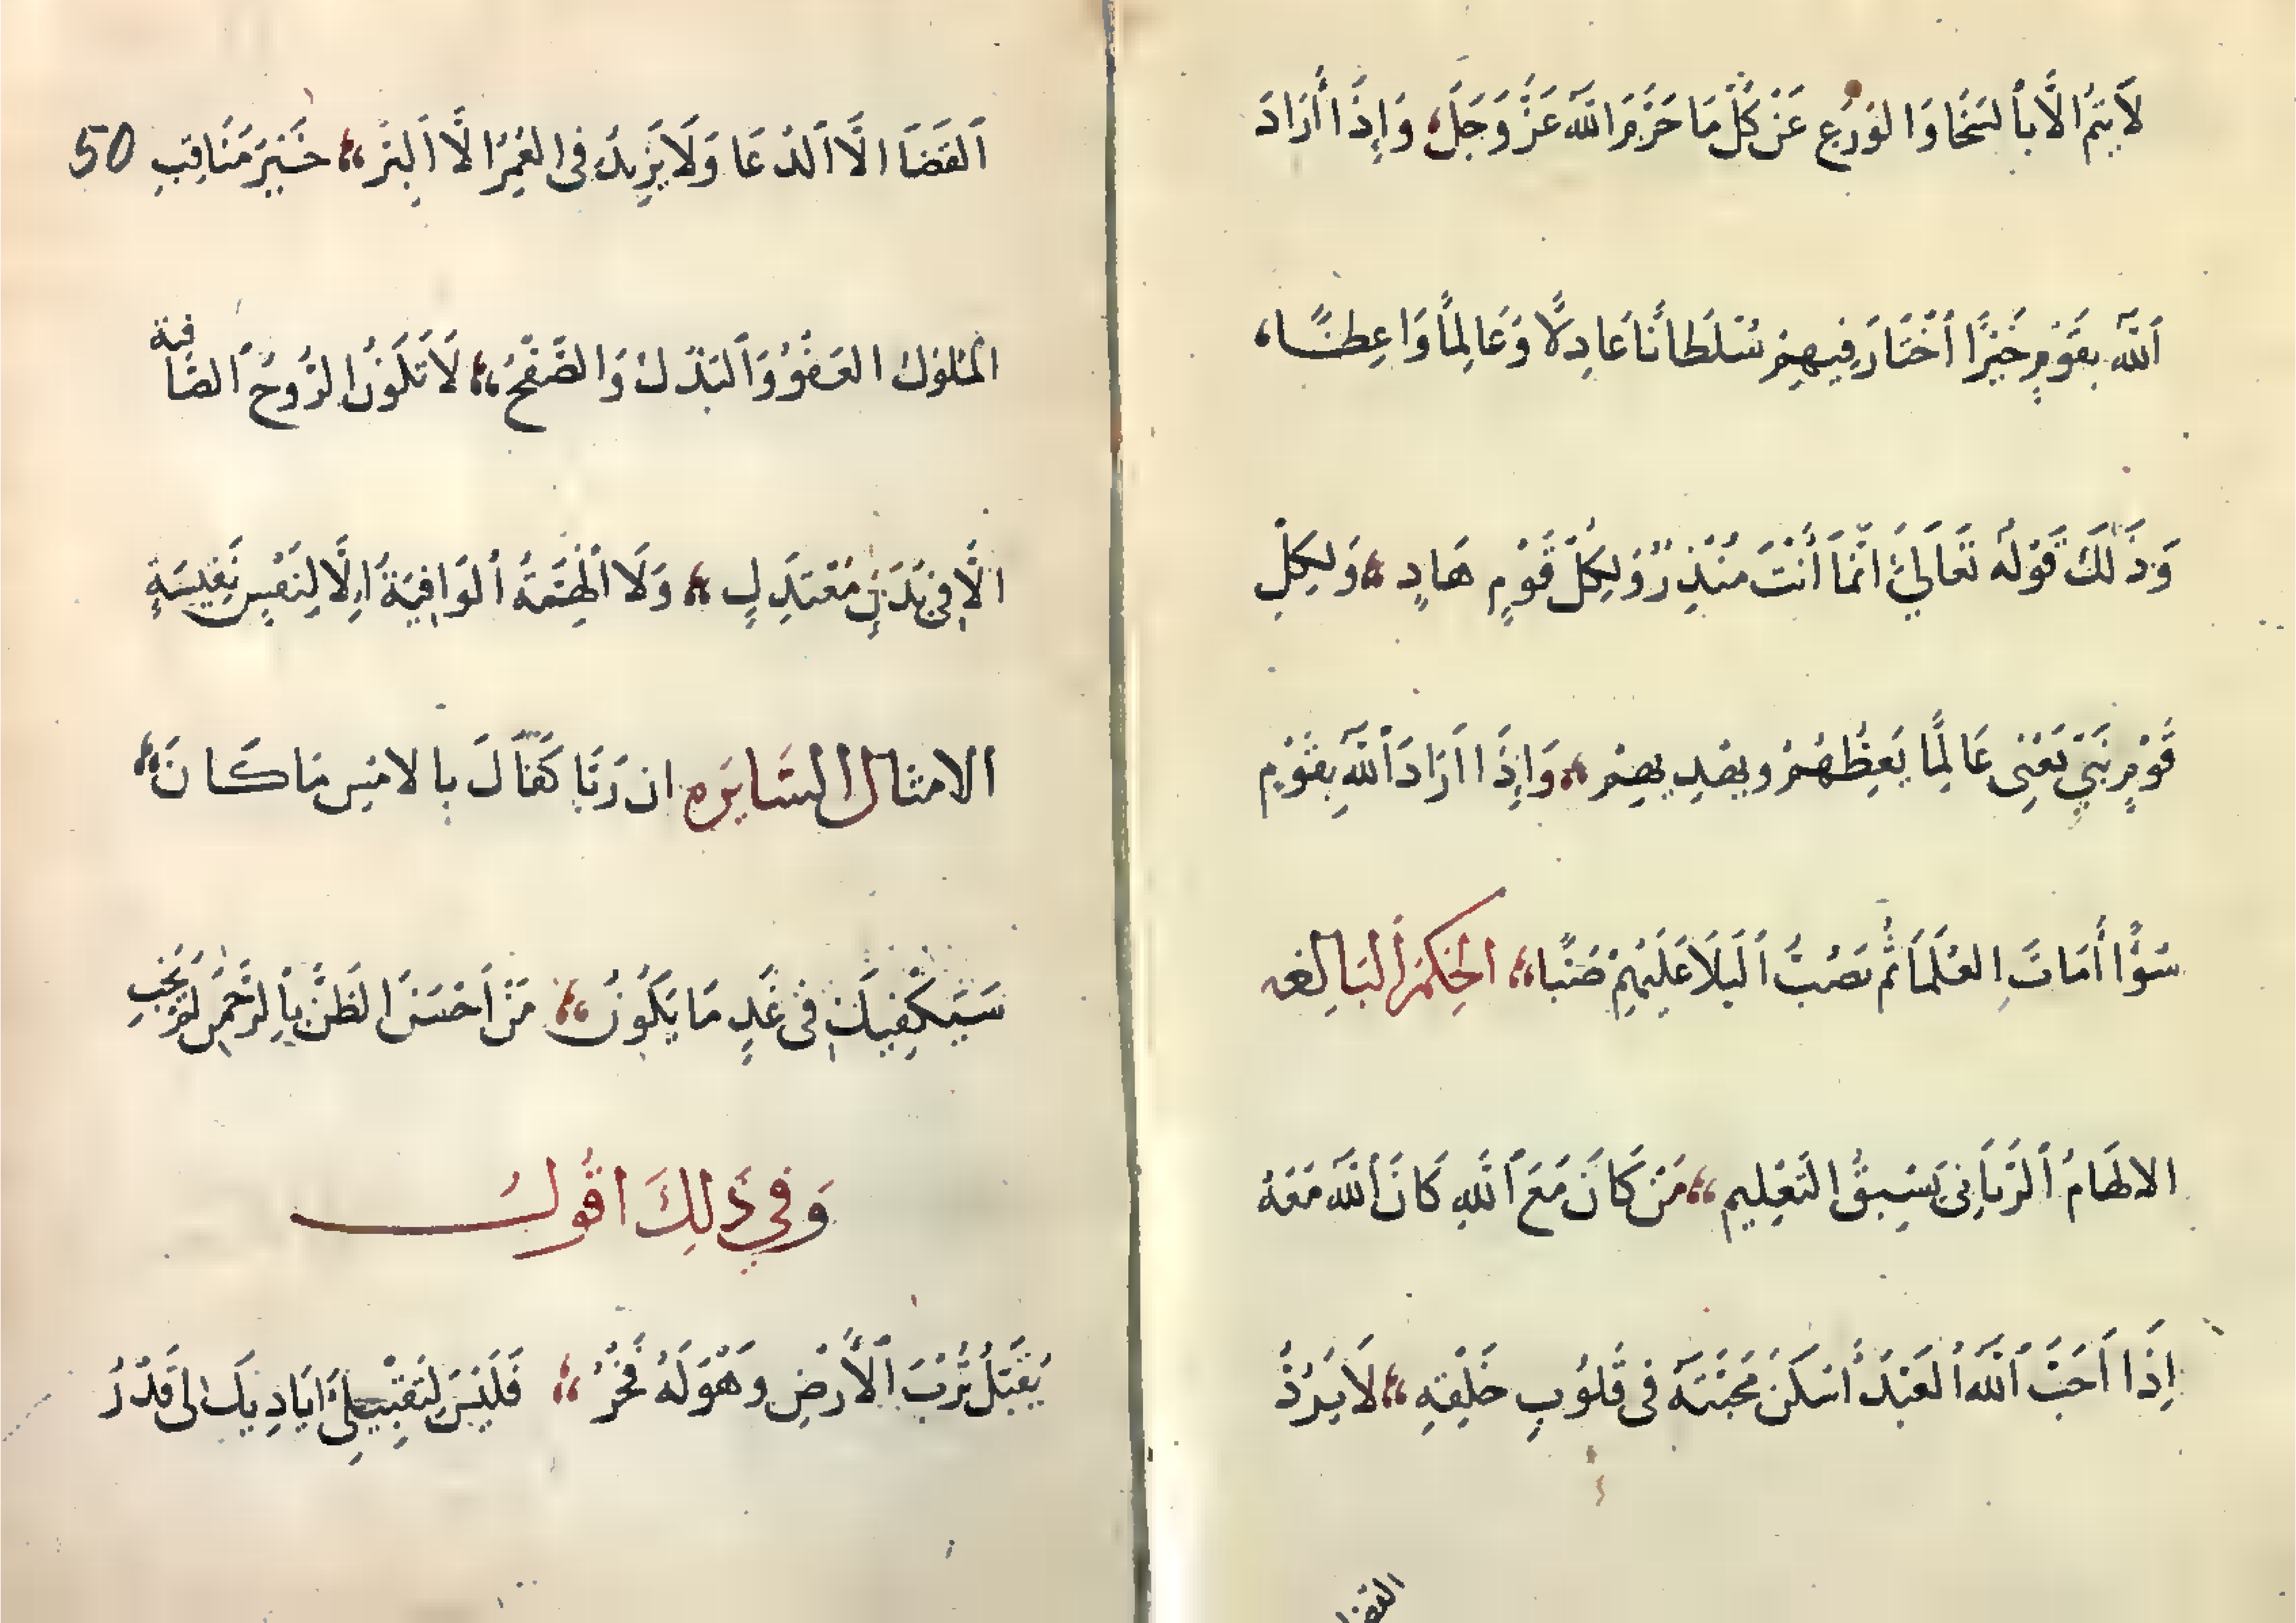 لَا يَتِمُّ الَّا بِالسَّخَا وَالوَرَعِ عَنْ كُلِّ مَا حَرَّمَ اللّٰهُ عَزَّ وَجَلَّ وَإِذَا أَرَادَ
اَللّٰهُ بِقَوْمٍ خَيْرًا اَخْتَارَ فِيهِمْ سُلْطَانًا عَادِلًا وَعَالِمًا وَاعِظًا،
وَذٰلِكَ قَوْلُهُ تَعَالَىٰ انَّمَا أَنْتَ مُنْذِرٌ وَلِكُلِّ قَوْمٍ هَادٍ وَلِكُلِّ
قَوْمٍ نَبِيّ يَعْنِى عَالِمًا يَعِظُهُمْ ويهْدِيهِمْ وَاِذَا اَرَادَ اَللّٰهُ بِقَوْمٍ
سُوْءًا أَمَاتَ العُلَمَا ثُمَّ يَصُبُّ اَلبَلَا عَلَيْهِمْ صَبًّا الحِكَمْ اَلبَالِغه
الالهَامُ اَلرَّبَانِى يَسْبِقُ التَعْلِيم مَنْ كَانَ مَعَ اَللّٰهِ كَانَ اَللّٰهُ مَعَهُ
اِذَا اَحَبَّ اَللّٰهُ العَبْدَ اَسْكَنَ مَحَبَّتَهُ فِى قُلُوبِ خَلْقِهِ لَا يَرُدُّ
القضا
اَلقَضَا الَّا اَلدُعَا وَلَا يَزِيدُ فِى العُمْرِ الَّا اَلبِرّ خَيْرُ مَنَاقِبِ 50
المُلُوكِ العَفْوُ وَاَلبَذْلُ وَالصَّفْحُ لَا تَكُونُ الرُّوحُ اَلصَّافية
الَّا فِى بَدَنٍ مُعْتَدِلٍ وَلَا اَلهِمَّةُ اَلوَافِيَةُ اِلَّا لِنَفْسٍ نَفِيسَةٍ
الامثال السَّايَره ان رَبًّا كَفَاكَ بالامْسِ مَا كَانَ
سَيَكْفِيكَ فِى غَدٍ مَا يَكُونُ مَنْ اَحْسَنَ الظَنَّ بِاَلرَّحْمٰنِ لَمْ يَخِبِ
وَفِي ذَلِكَ اقُولُ
يُقَبَّلُ تُرْبُ اَلأَرْضِ وهْوَ لَهُ فَخْرُ فَلَيْسَ لِتَقْبِيلِى اَيَادِيكَ لِى قَدْرُ